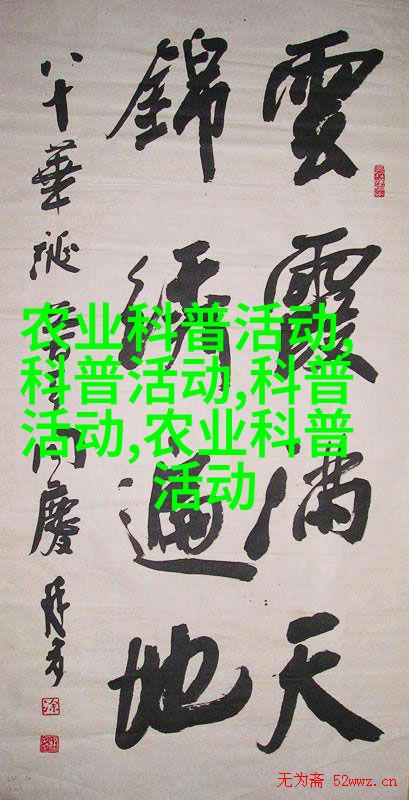 雲霞满天
錦繡遍地
八十華诞
同慶
农业科普活动,
科普活动,科普
活动,农业科普
活动
无为斋 52wwz.cn